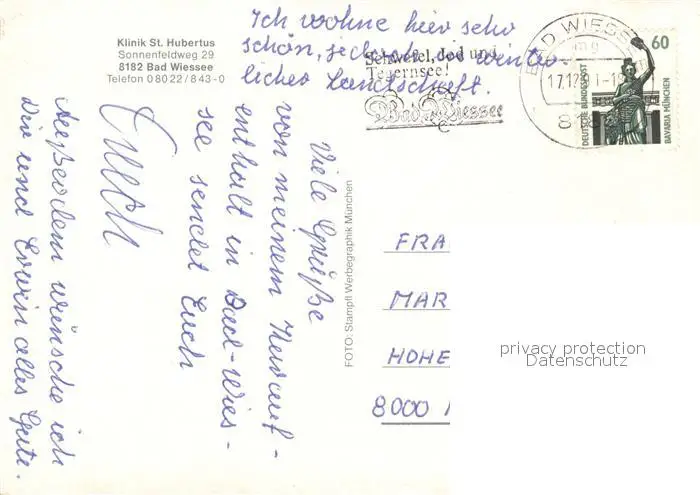 Klinik St. Hubertus
Sonnenfeldweg 29
8182 Bad Wiessee
Telefon 0 80 22 / 843-0
Viele Grüße
von meinem Kurauf-
enthalt in Bad-Wies-
see sendet Euch
Außerdem wünsche ich
Dir und Erwin alles Gute.
Ich wohne hier sehr
schön, jedoch in winter
licher Landschaft.
Schwefel, Jod und
Tegernsee!
Bad Wiessee
BAD WIESSEE
17.12.
60
DEUTSCHE BUNDESPOST
BAVARIA MÜNCHEN
FOTO: Stampfl Werbegraphik München
FRA
MAR
HOHE
8000
privacy protection
Datenschutz